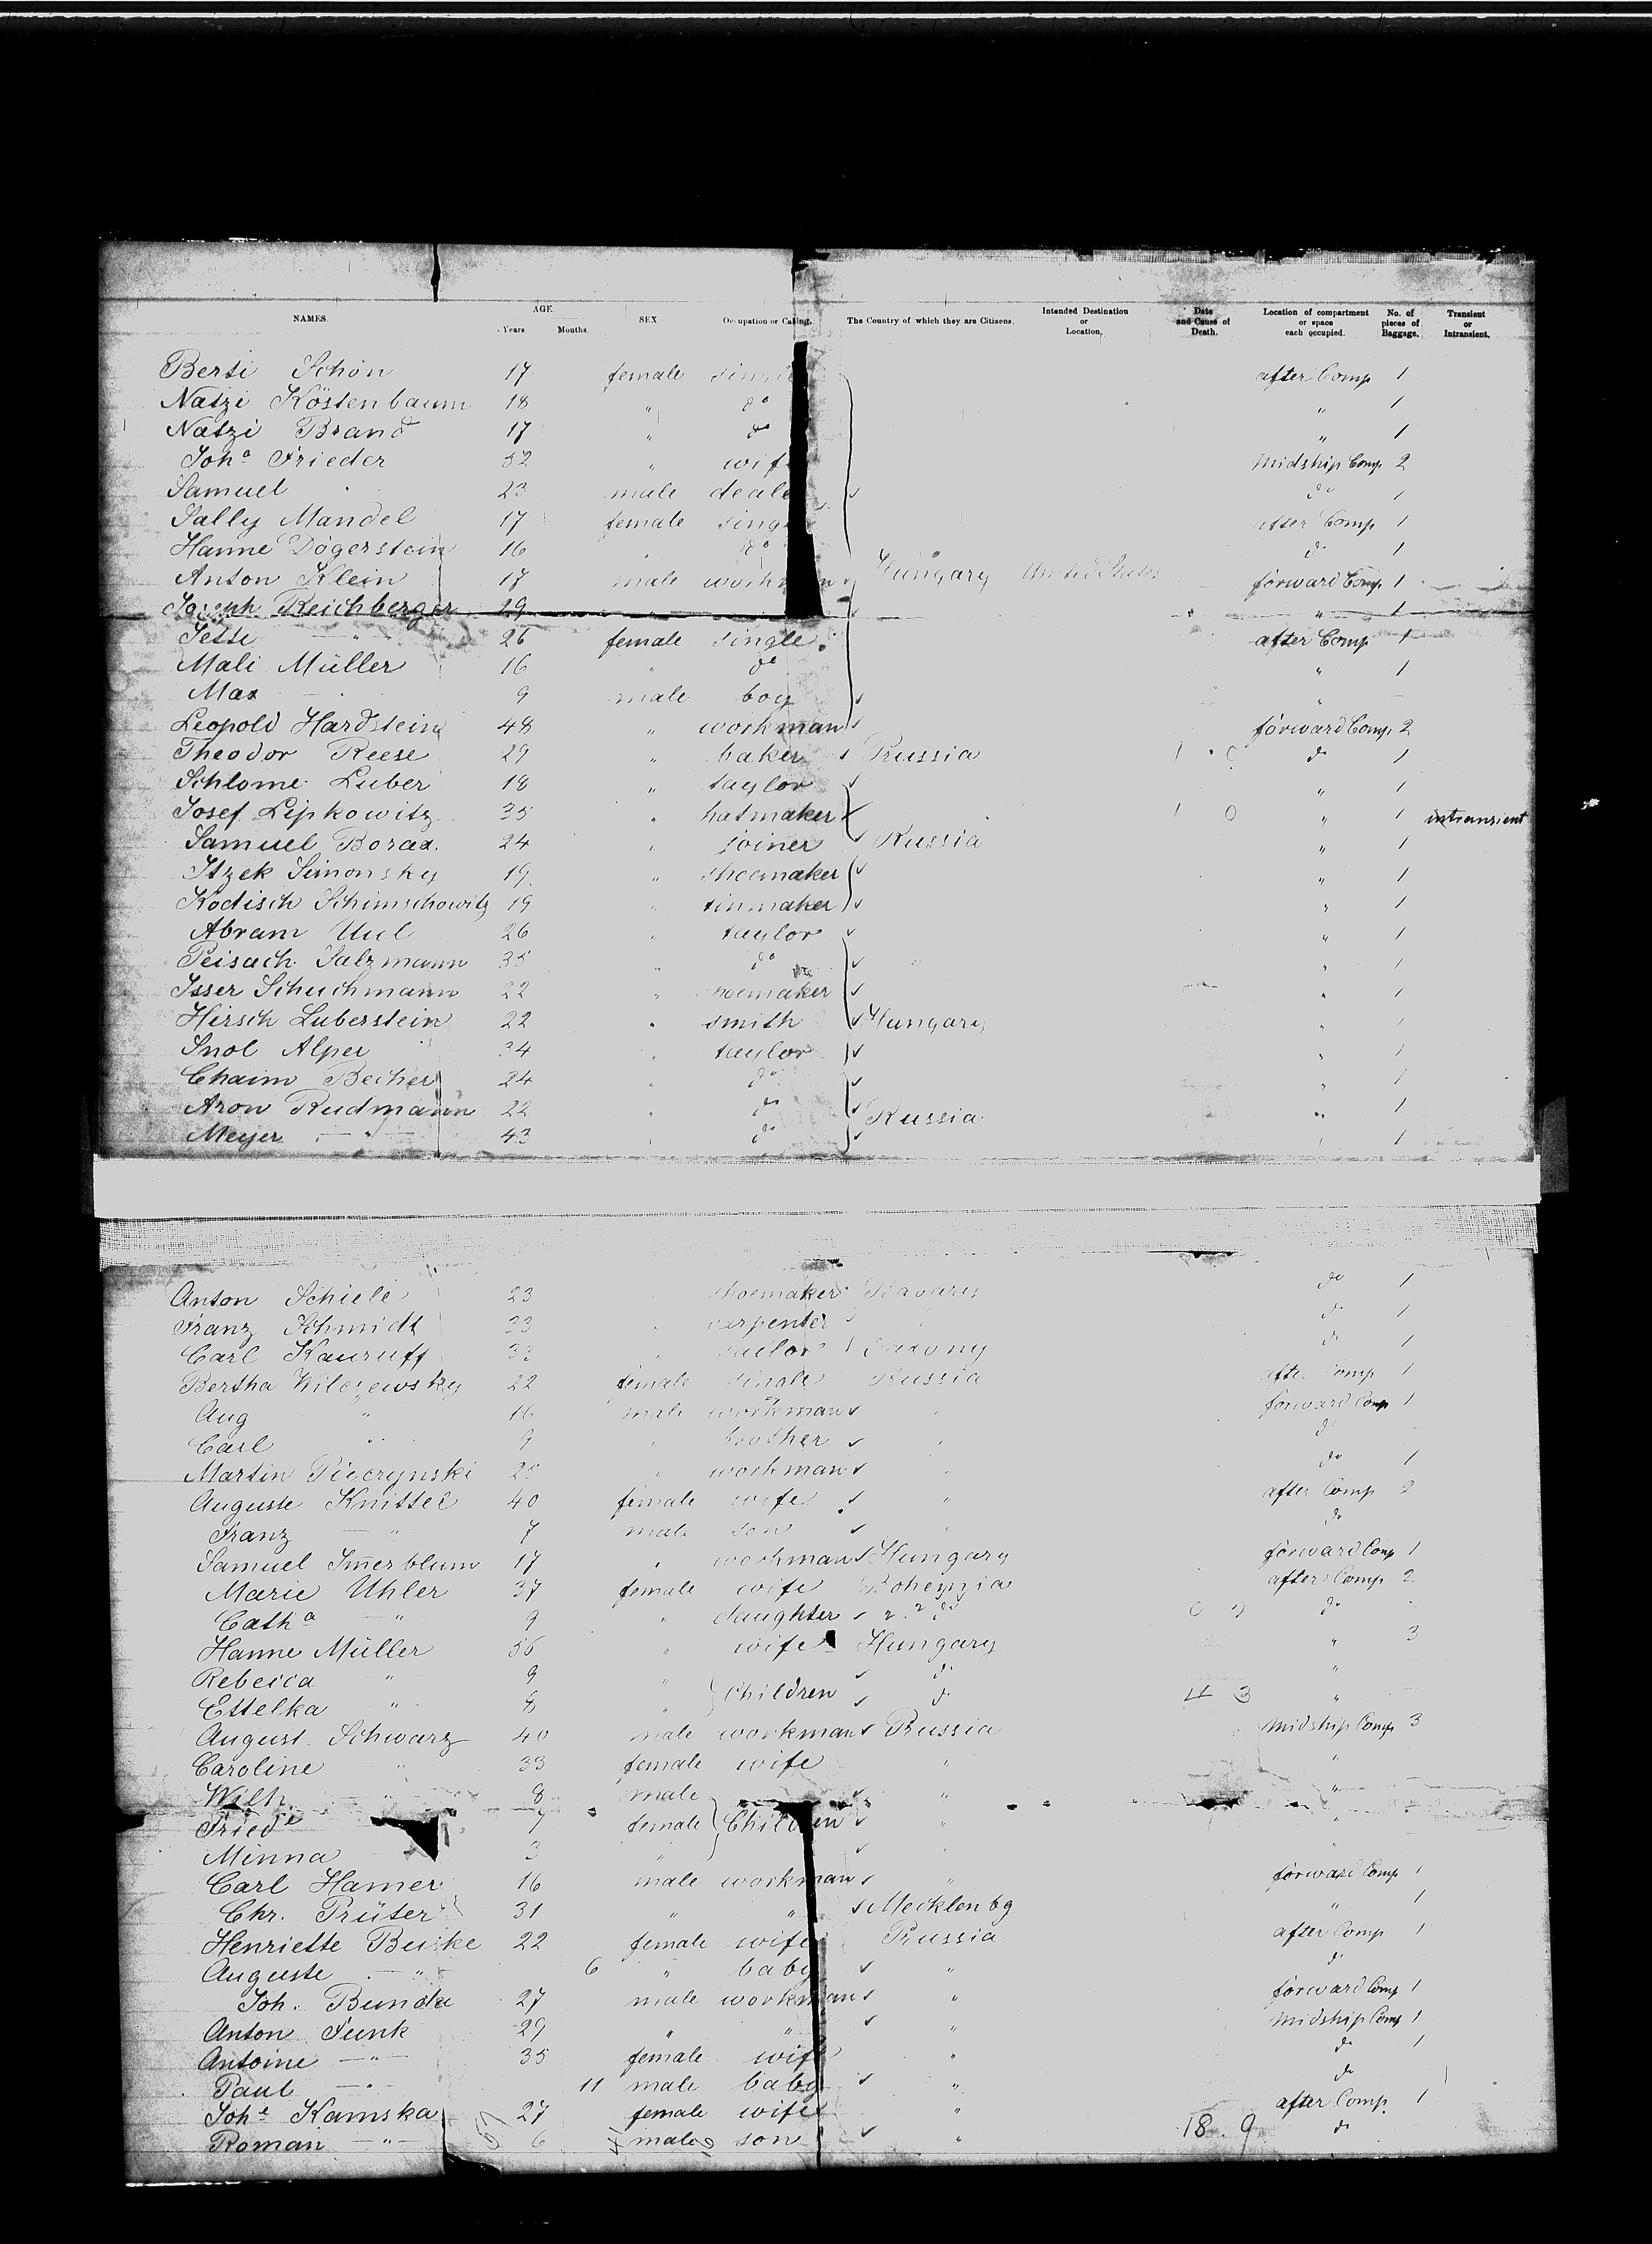 NAMES. AGE. Years Months. SEX Occupation or Calling. The Country of which they are Citizens. Intended Destination or Location. Date and Cause of Death. Location of compartment or space each occupied. No. of pieces of Baggage. Transient or Intransient.
Berti Schön 17 female single after Comp 1
Natzi Köstenbaum 18 " do " 1
Natzi Brand 17 " do " 1
Joh a Frieder 52 " wife Midship Comp. 2
Samuel " 23 male dealer do 1
Sally Mandel 17 female single after Comp 1
Hanne Dögerstein 16 " do do 1
Anton Klein 17 male workman Hungary United States forward Comp. 1
Joseph Reichberger 29 " " 1
26 female single after Comp 1
Mali Müller 16 " do " 1
Max " 9 male boy "
Leopold Hardstein 48 " workman forward Comp. 2
Theodor Reese 29 " baker Prussia do 1
Schlome Luber 18 " taylor " 1
Josef Lipkowitz 35 " hatmaker 1 0 " 1 intransient
Samuel Borax. 24 " joiner Russia " 1
Itzek Simonsky 19 " shoemaker " 1
Kodisch Schimschowitz 19 " tinmaker " 1
Abram 26 " taylor " 1
Peisach Salzmann 35 " do " 1
Isser Schuchmann 22 " shoemaker " 1
Hirsch Luberstein 22 " smith Hungary " 1
Alper 34 " taylor " 1
Chaim Becher 24 " do " 1
Aron Rudmann 22 " do Russia " 1
Meyer " 43 " do " 1
Anton Schiele 23 " shoemaker Bavary do 1
Franz Schmidt 33 " carpenter do 1
Carl Kauruff " sailor Saxony do 1
Bertha Wilczewsky 22 female single Russia after Comp 1
Aug " 16 male workman " forward Comp 1
Carl " 9 " brother " do
Martin 25 " workman " do 1
Auguste Knittel 40 female wife " after Comp 2
Franz " 7 male son " do
Samuel Im̅erblum 17 " workman Hungary forward Comp 1
Marie Uhler 37 female wife Bohemia after Comp. 2
Cath a " 9 " daughter do do
Hanne Müller 56 " wife Hungary " 3
Rebecca " 9 " Children do "
Ettelka " 8 " do 4 3 "
August. Schwarz 40 male workman Prussia Midship Comp 3
Caroline " 33 female wife " "
Wilh. " 8 male " "
Fried e 7 female Children " "
Minna 3 " " "
Carl Hamer 16 male workman " forward Comp 1
Chr. Prüter 31 " " Mecklenbg " 1
Henriette Buike 22 female wife Prussia after Comp 1
Auguste " 6 " baby " do
Joh. Bunda 27 male workman " forward Comp 1
Anton Funk 29 " " " Midship Comp 1
Antoine " 35 female wife " do 1
Paul " 11 male baby " do
Joh e Kamska 27 female wife " after Comp. 1
Roman " 6 male son " 18. 9 do